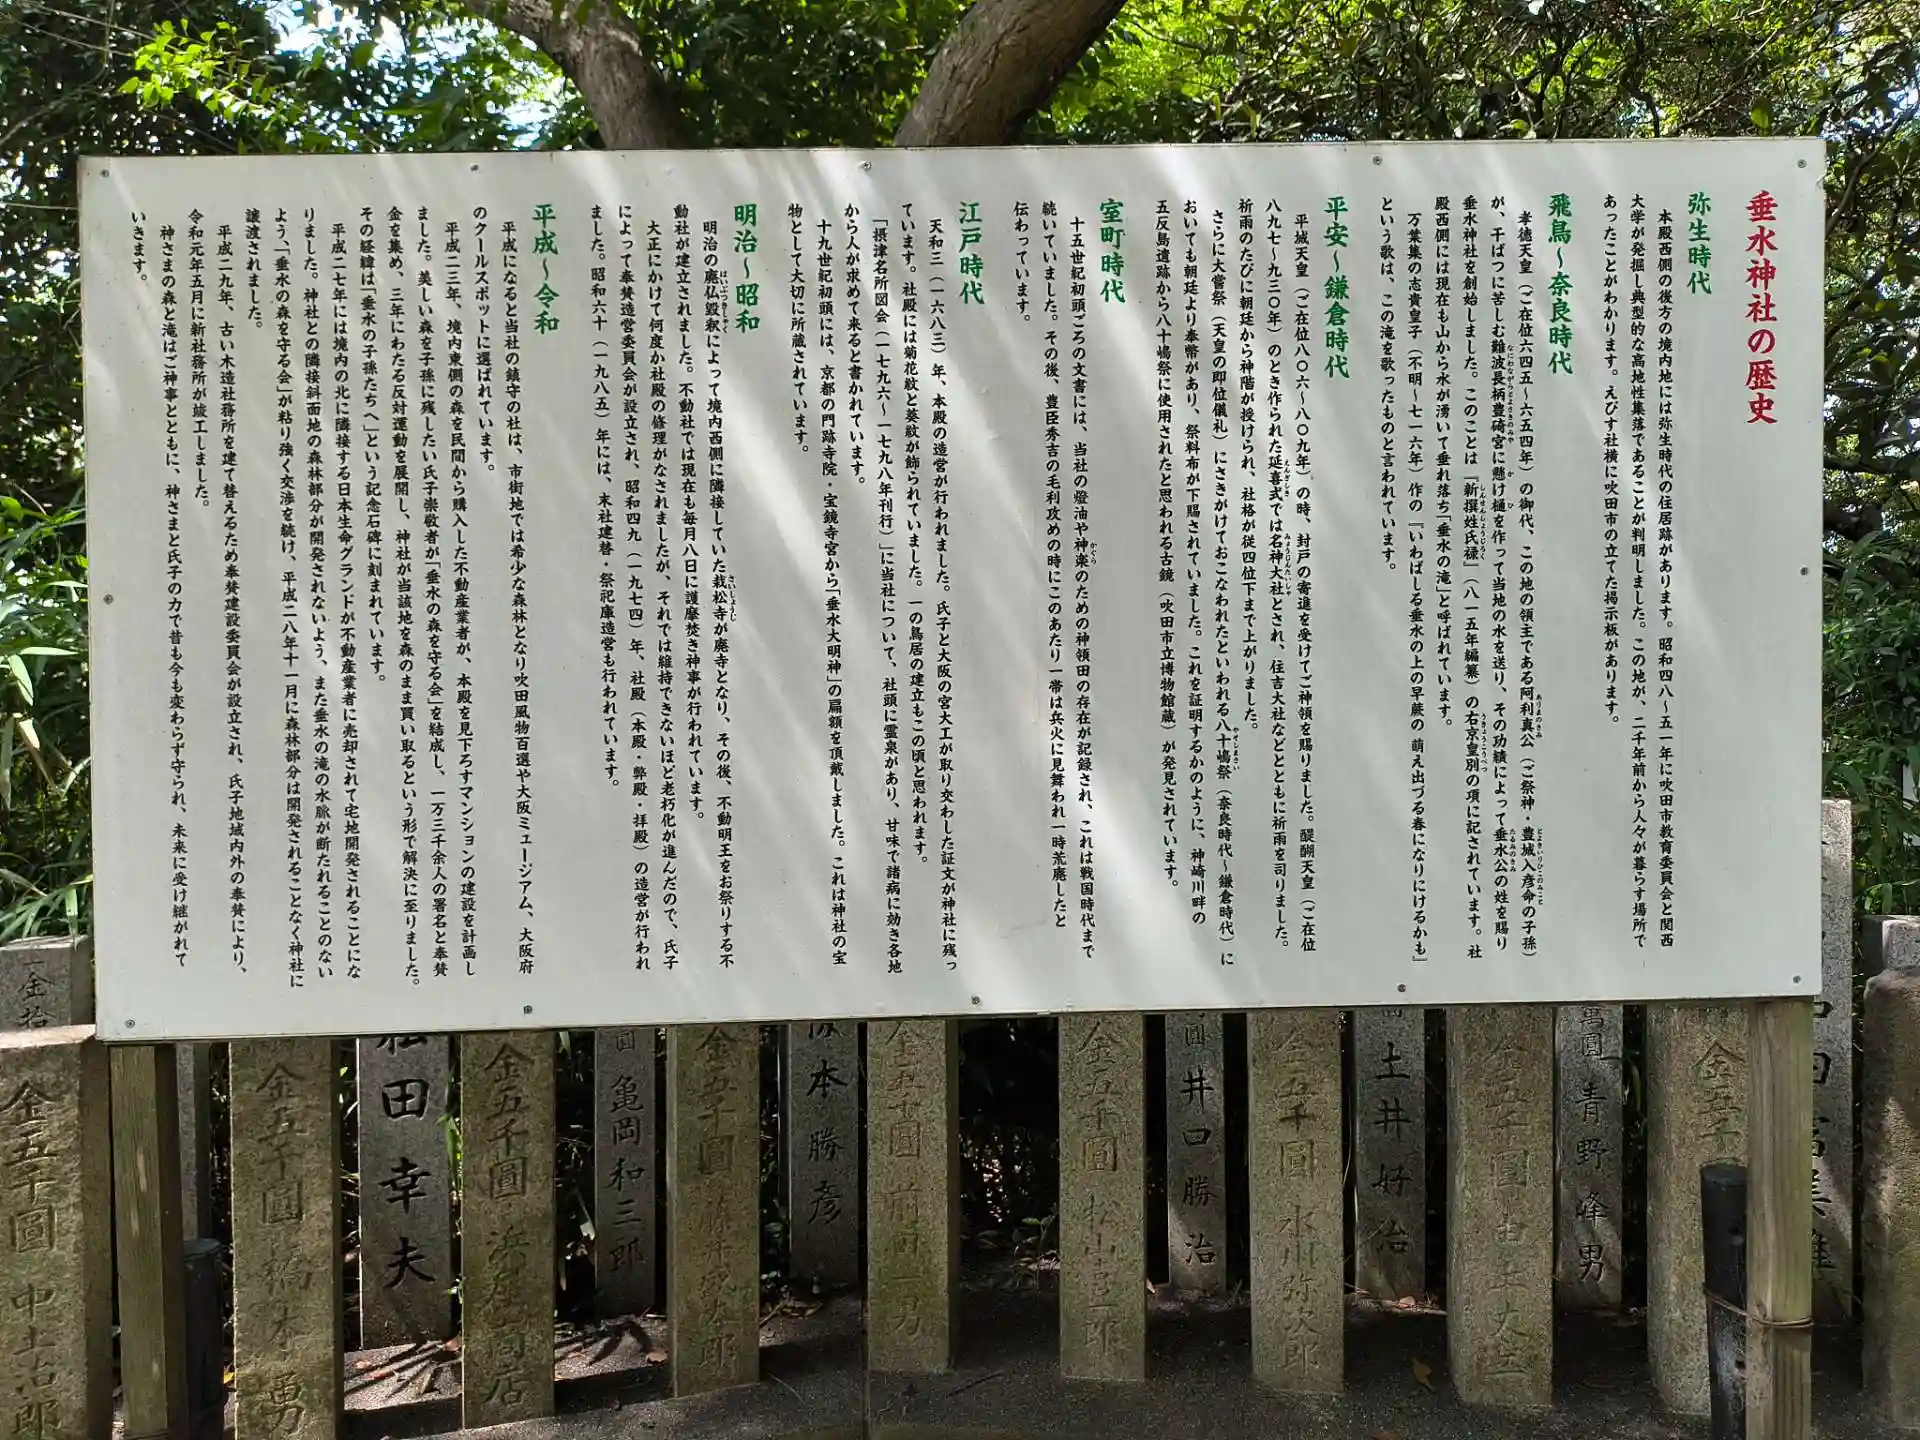 垂水神社の歴史
弥生時代
本殿西側の後方の境内地には弥生時代の住居跡があります。昭和四八～五一年に吹田市教育委員会と関西
大学が発掘し典型的な高地性集落であることが判明しました。この地が、二千年前から人々が暮らす場所で
あったことがわかります。えびす社横に吹田市の立てた掲示板があります。
飛鳥～奈良時代
孝徳天皇（ご在位六四五～六五四年）の御代、この地の領主である阿利真公（ご祭神・豊城入彦命の子孫）
が、干ばつに苦しむ難波長柄豊碕宮に懸け樋を作って当地の水を送り、その功績によって垂水公の姓を賜り
垂水神社を創始しました。このことは『新撰姓氏禄』（八一五年編纂）の右京皇別の項に記されています。社
殿西側には現在も山から水が湧いて垂れ落ち「垂水の滝」と呼ばれています。
万葉集の志貴皇子（不明～七一六年）作の『いわばしる垂水の上の早蕨の 萌え出づる春になりにけるかも』
という歌は、この滝を歌ったものと言われています。
平安～鎌倉時代
平城天皇（ご在位八〇六～八〇九年）の時、封戸の寄進を受けてご神領を賜りました。醍醐天皇（ご在位
八九七～九三〇年）のとき作られた延喜式では名神大社とされ、住吉大社などとともに祈雨を司りました。
祈雨のたびに朝廷から神階が授けられ、社格が従四位下まで上がりました。
さらに大嘗祭（天皇の即位儀礼）にさきがけておこなわれたといわれる八十嶋祭（奈良時代～鎌倉時代）に
おいても朝廷より奉幣があり、祭料布が下賜されていました。これを証明するかのように、神崎川畔の
五反島遺跡から八十嶋祭に使用されたと思われる古鏡（吹田市立博物館蔵）が発見されています。
室町時代
十五世紀初頭ごろの文書には、当社の燈油や神楽のための神領田の存在が記録され、これは戦国時代まで
続いていました。その後、豊臣秀吉の毛利攻めの時にこのあたり一帯は兵火に見舞われ一時荒廃したと
伝わっています。
江戸時代
天和三（一六八三）年、本殿の造営が行われました。氏子と大阪の宮大工が取り交わした証文が神社に残っ
ています。社殿には菊花紋と葵紋が飾られていました。一の鳥居の建立もこの頃と思われます。
「摂津名所図会（一七九六～一七九八年刊行）」に当社について、社頭に霊泉があり、甘味で諸病に効き各地
から人が求めて来ると書かれています。
十九世紀初頭には、京都の門跡寺院・宝鏡寺宮から「垂水大明神」の扁額を頂戴しました。これは神社の宝
物として大切に所蔵されています。
明治～昭和
明治の廃仏毀釈によって境内西側に隣接していた栽松寺が廃寺となり、その後、不動明王をお祭りする不
動社が建立されました。不動社では現在も毎月八日に護摩焚き神事が行われています。
大正にかけて何度か社殿の修理がなされましたが、それでは維持できないほど老朽化が進んだので、氏子
によって奉賛造営委員会が設立され、昭和四九（一九七四）年、社殿（本殿・弊殿・拝殿）の造営が行われ
ました。昭和六十（一九八五）年には、末社建替・祭祀庫造営も行われています。
平成～令和
平成になると当社の鎮守の社は、市街地では希少な森林となり吹田風物百選や大阪ミュージアム、大阪府
のクールスポットに選ばれています。
平成二三年、境内東側の森を民間から購入した不動産業者が、本殿を見下ろすマンションの建設を計画し
ました。美しい森を子孫に残したい氏子崇敬者が「垂水の森を守る会」を結成し、一万三千余人の署名と奉賛
金を集め、三年にわたる反対運動を展開し、神社が当該地を森のまま買い取るという形で解決に至りました。
その経緯は「垂水の子孫たちへ」という記念石碑に刻まれています。
平成二七年には境内の北に隣接する日本生命グランドが不動産業者に売却されて宅地開発されることにな
りました。神社との隣接斜面地の森林部分が開発されないよう、また垂水の滝の水脈が断たれることのない
よう、「垂水の森を守る会」が粘り強く交渉を続け、平成二八年十一月に森林部分は開発されることなく神社に
譲渡されました。
平成二九年、古い木造社務所を建て替えるため奉賛建設委員会が設立され、氏子地域内外の奉賛により、
令和元年五月に新社務所が竣工しました。
神さまの森と滝はご神事とともに、神さまと氏子の力で昔も今も変わらず守られ、未来に受け継がれて
いきます。
青野峰男
金五千圓
土井好治
金五千圓 水川弥次郎
圓 井口勝治
金五千圓 松山喜一郎
金五千圓 前
本勝彦
金五千圓 藤井
圓 亀岡和三郎
金五千圓
田幸夫
金五千圓 橋本 勇
金拾
金五千圓 中土治郎